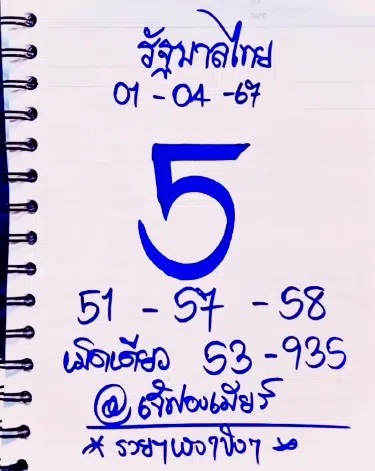 รัฐบาลไทย
01 - 04 - 67
5
51 - 57 - 58
เม็ดเดียว 53 - 935
* รวยๆเฮงๆปังๆ *